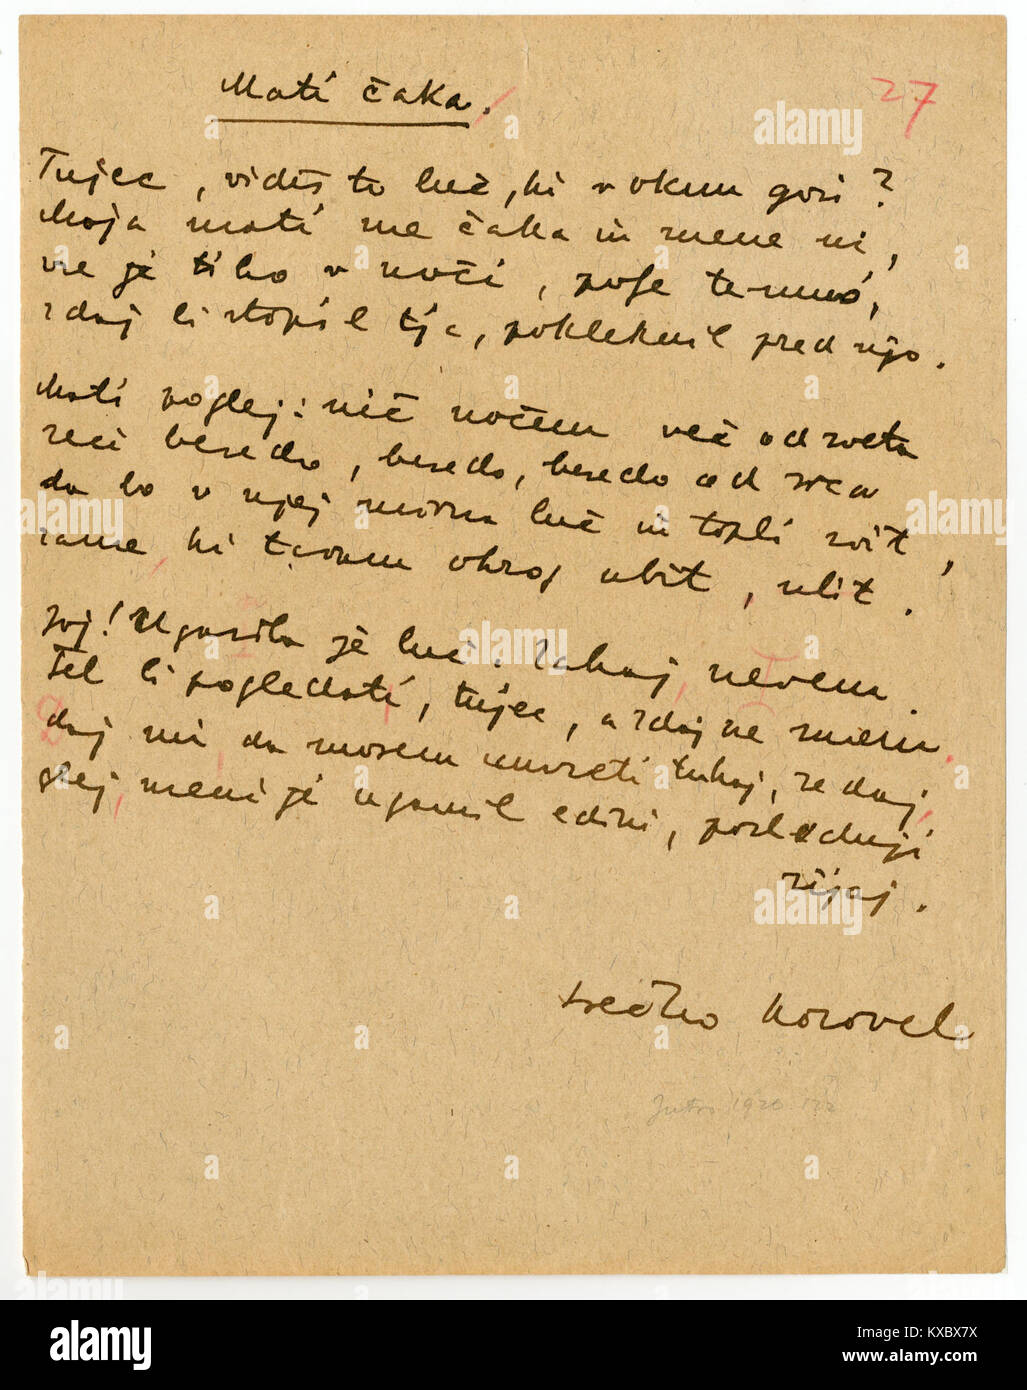 Mati čaka.
27
Tujec, vidiš to luč, ki v oknu gori?
Moja mati me čaka in mene ni,
vse je tiho v noči, polje temno,
zdaj bi stopil tja, pokleknil pred njo.
Mati poglej: nič nočem več od sveta
reci besedo, besedo, besedo od srca
da bo v njej mirna luč in topli svit,
zame, ki tavam okrog ubit, ubit.
Joj! Ugasila je luč. Zakaj, nevem.
Tel bi pogledati, tujec, a zdaj ne smem.
daj mi da morem umreti tukaj, sedaj,
glej, meni je ugasnil edini, poslednji
sijaj.
Srečko Kosovel
Jutro 1920
alamy
Image ID: KXBX7X
www.alamy.com